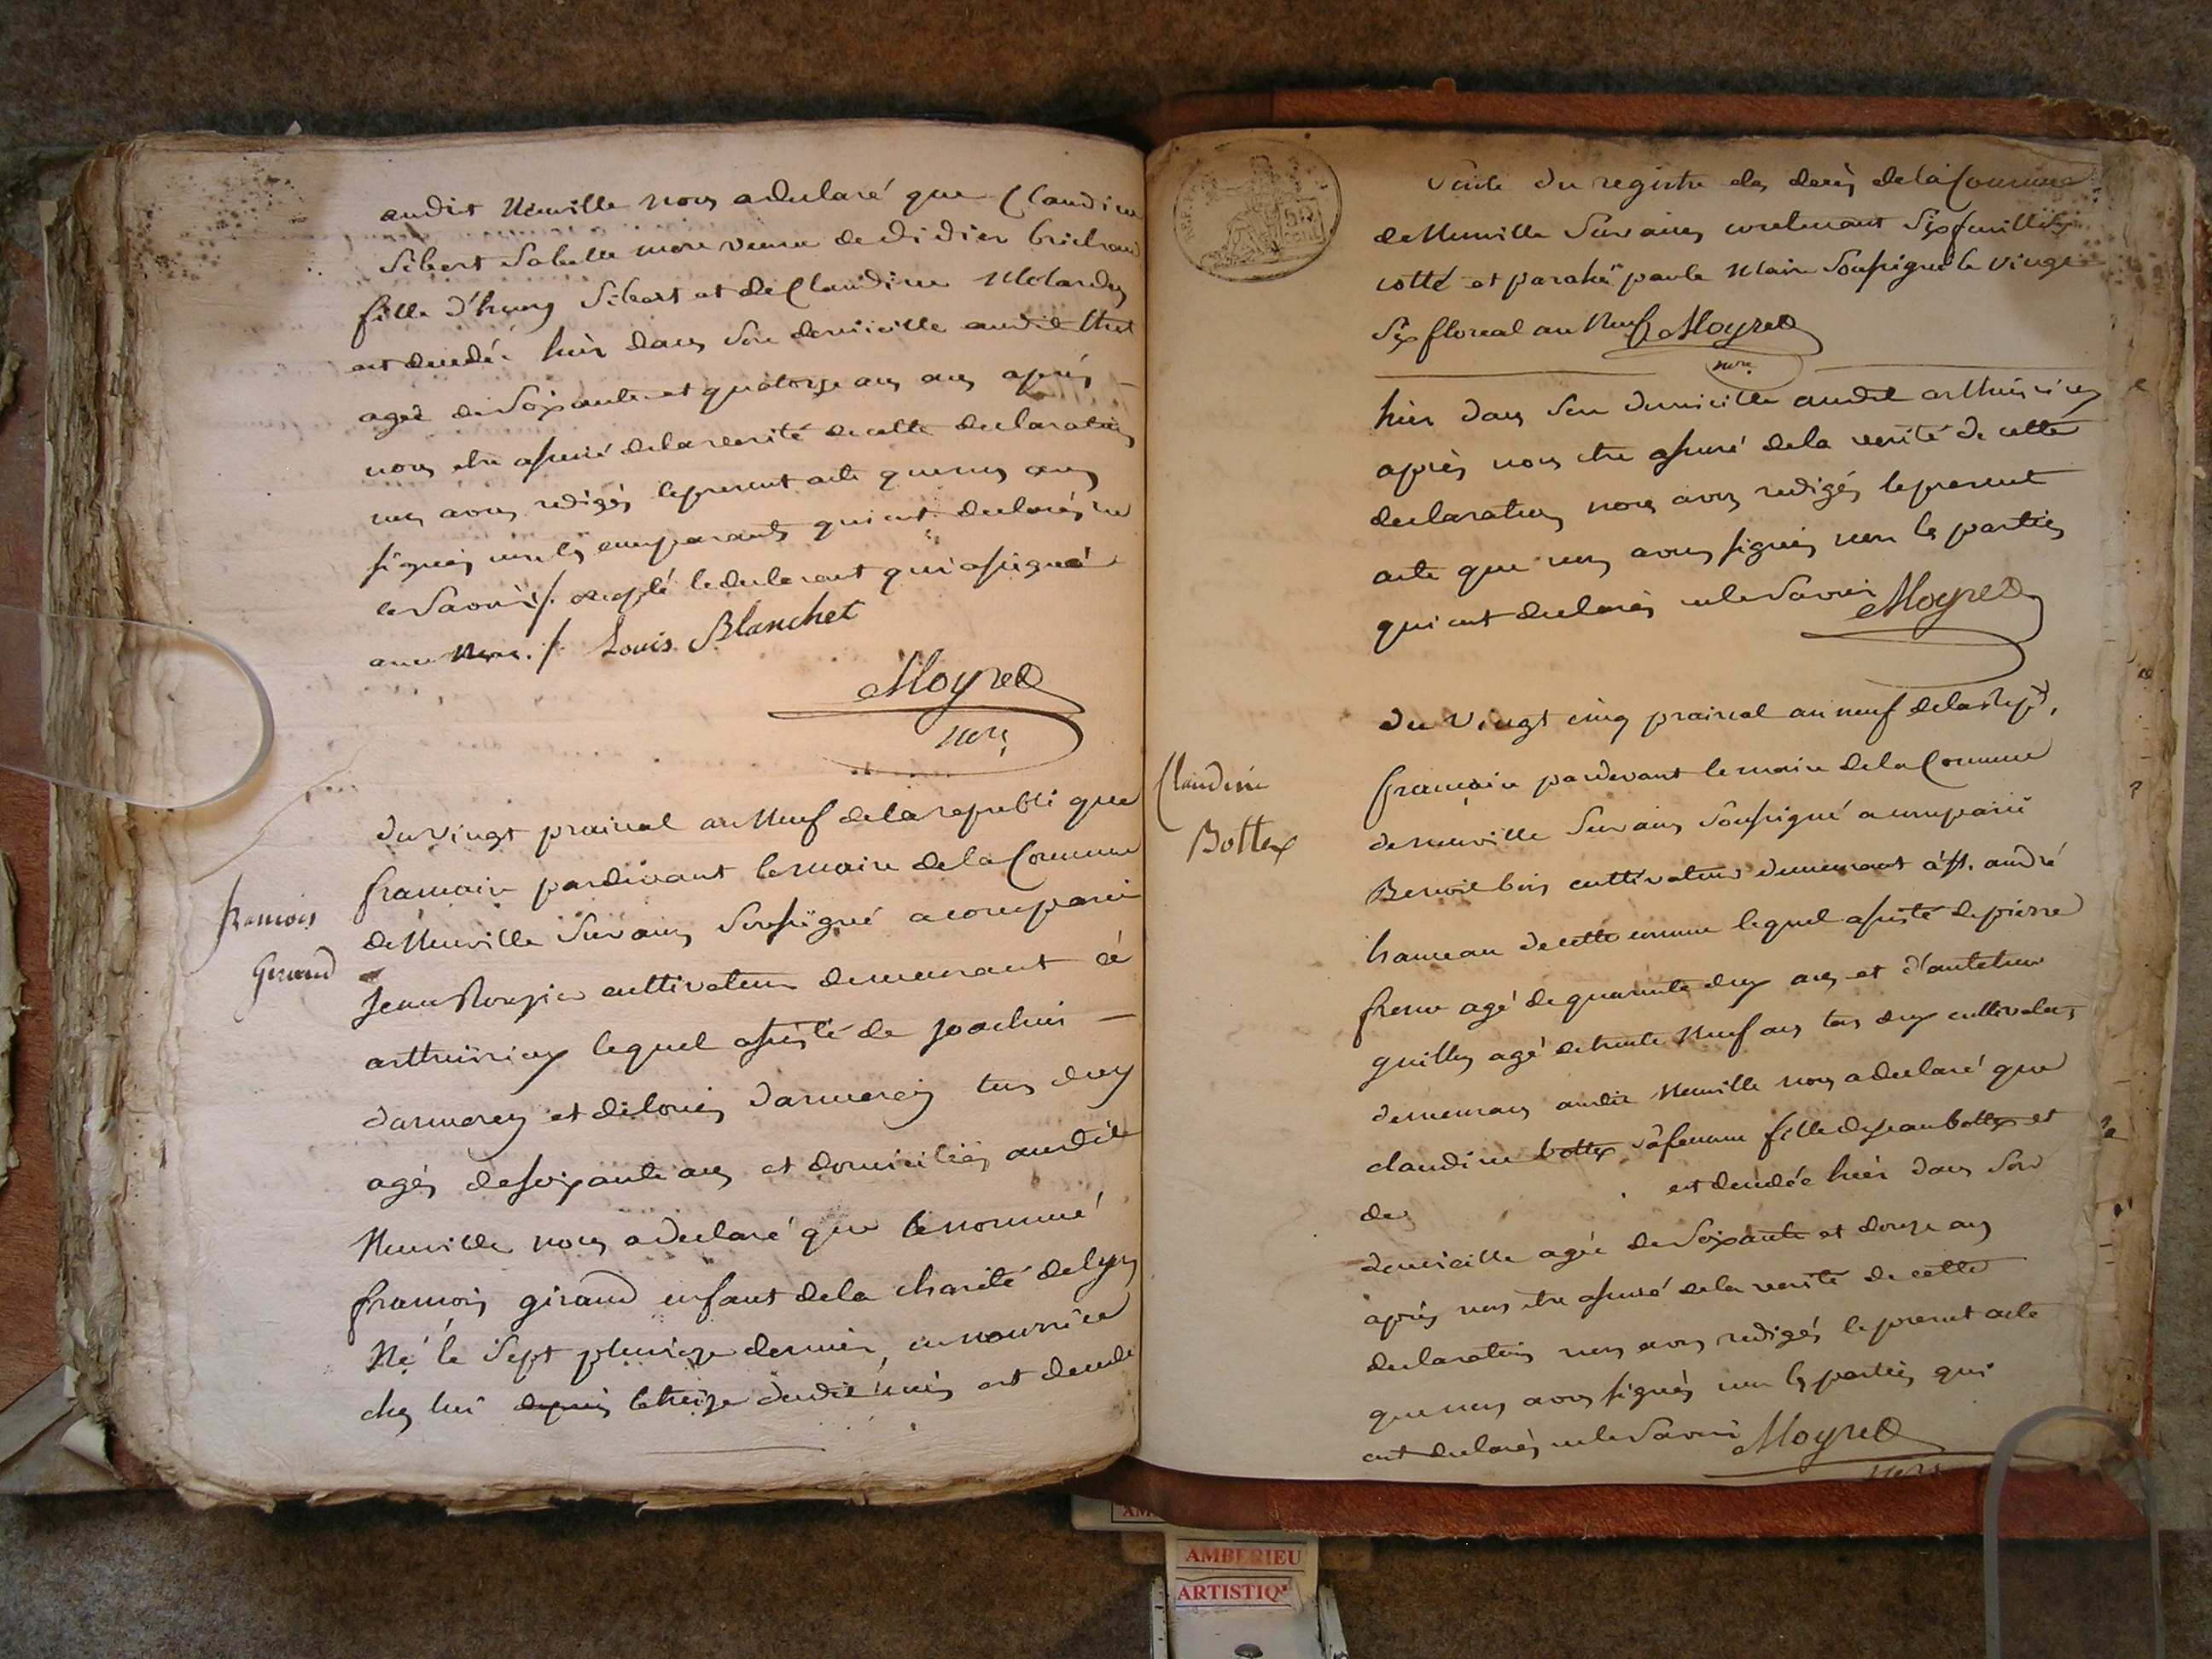 audit Neuville nous a declaré que Claudine
Sibert Sa belle mere veuve de Didier brichon
fille d'humg Sibert et de Claudine Molardy
est decedé hier dans son domicille audit
agée de Soixante et quatorze ans après
nous etre assuré de la verité de cette declaration
nous avons redigés le present acte que nous avons
signés non les comparants qui ont declarés ne
le Savoir ./. excepté le declarant qui a signé
avec Nous ./. Louis Blanchet
Moyret
Francois
Giraud
du vingt prairial an Neuf de la republi que
francaise pardevant le maire de la Commune
de Neuville Sur ains Soussigné a comparu
Jean cultivateur demeurant à
arthuirieux lequel assisté de joachin
darmerey et de louis darmerey tous deux
agés de soixante ans et domiciliés audit
Neuville nous a declaré que le nommé
francois giraud enfant de la charité de lyon
Né le Sept pluvioze dernier, en nourrice
chez lui depuis le treize dudit mois est decedé
Suite du registre des decès de la Commune
de Neuville Sur ains contenant Six feuillets
cotté et paraphé par le Maire Soussigné le vingt
Six floreal an Neuf Moyret
hier dans Son domicille audit arthuirieux
après nous etre assuré de la verité de cette
declaration nous avons redigés le present
acte que nous avons signés non les parties
qui ont declarés ne le Savoir Moyret
Claudine
Bottex
du vingt cinq prairial an neuf de la Rep.
francaise pardevant le maire de la Commune
de neuville Sur ains Soussigné a comparu
Benoit bin cultivateur demeurant à st. andré
hameau de cette commune lequel assisté de pierre
frene agé de quarante deux ans et d'antelme
guillon agé de trente Neuf ans tous deux cultivateurs
demeurans audit Neuville nous a declaré que
claudine bottex sa femme fille de jean bottex et
de est decedée hier dans Son
domicille agée de Soixante et douze ans
après nous etre assuré de la verité de cette
declaration nous avons redigés le present acte
que nous avons signés non les parties qui
ont declarés ne le Savoir Moyret
AMBERIEU
ARTISTIQ